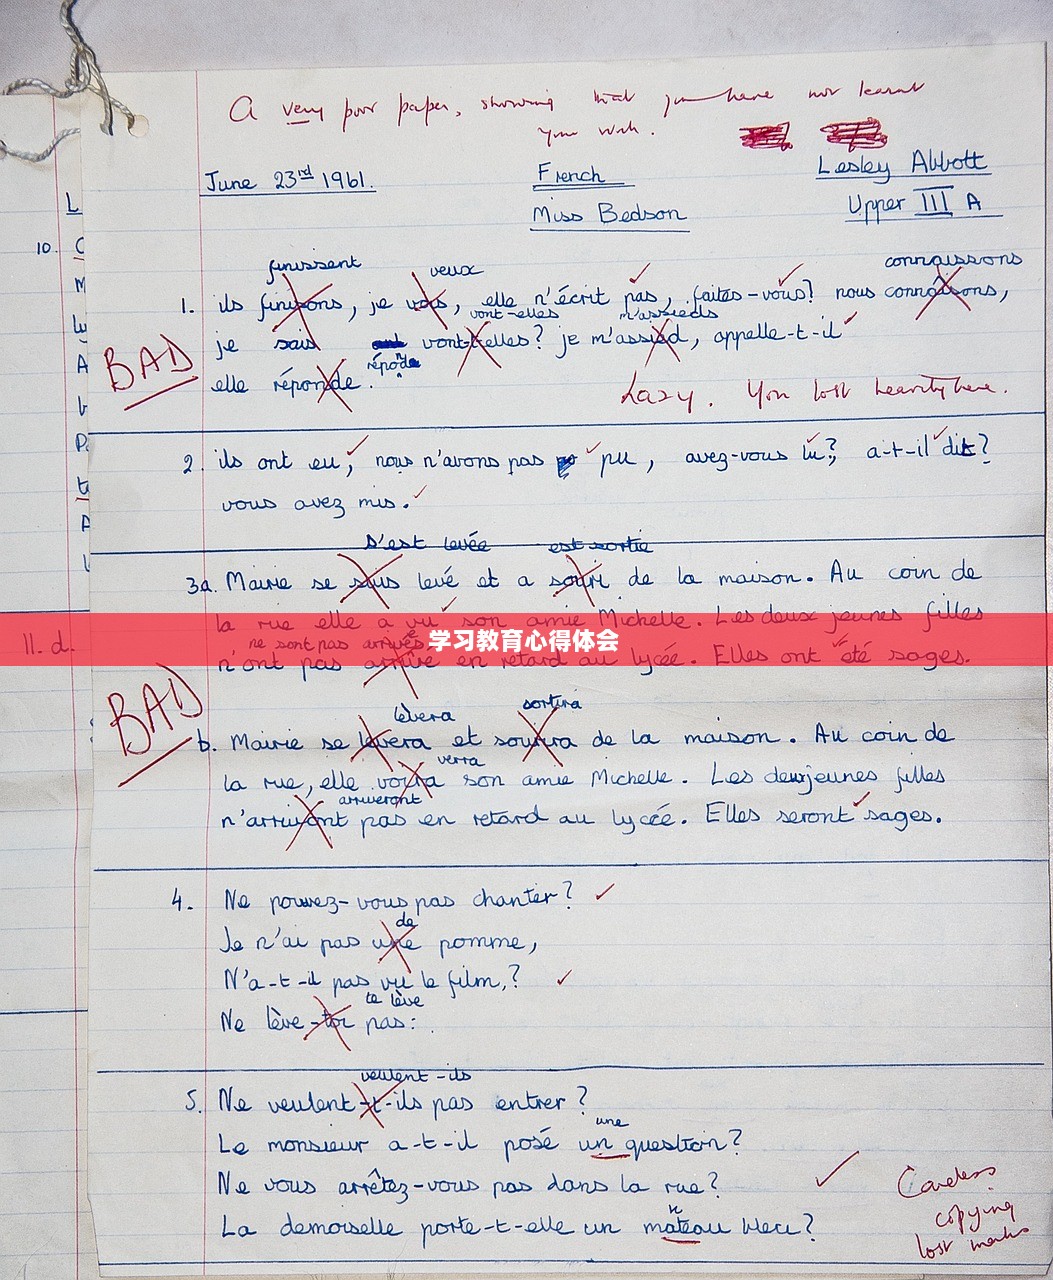 A very poor paper, showing that you have not learnt
your work.
June 23rd 1961.
French
Lesley Abbott
Miss Bedson
Upper III A
finissent
veux
connaissons
1. ils finisons, je vois, elle n'écrit pas, faites-vous? nous connaisons,
vont-elles
m'assieds
je sais vont-t-elles? je m'assied, appelle-t-il
BAD
réponde
elle réponde.
Lazy. You lost heavily here.
2. ils ont eu, nous n'avons pas pu, avez-vous lu?, a-t-il dit?
vous avez mis.
s'est levée
est sortie
3a. Mairie se suis levé et a souri de la maison. Au coin de
la rue elle a vu son amie Michelle. Les deux jeunes filles
ne sont pas arrivés
学习教育心得体会
n'ont pas arrivé en retard au lycée. Elles ont été sages.
BAD
lèvera
sortira
b. Mairie se levera et sourira de la maison. Au coin de
verra
la rue, elle voira son amie Michelle. Les deuxjeunes filles
arriveront
n'arriviont pas en retard au lycée. Elles seront sages.
4. Ne pouvez-vous pas chanter?
de
Je n'ai pas une pomme,
N'a-t-il pas vu le film,?
te lève
Ne lève-toi pas:
veulent-ils
5. Ne veulent-t-ils pas entrer?
une
Le monsieur a-t-il posé un question?
Ne vous arrêtez-vous pas dans la rue?
La demoiselle porte-t-elle un mateau bleu?
n
Careless
copying
lost marks
10.
11. d.